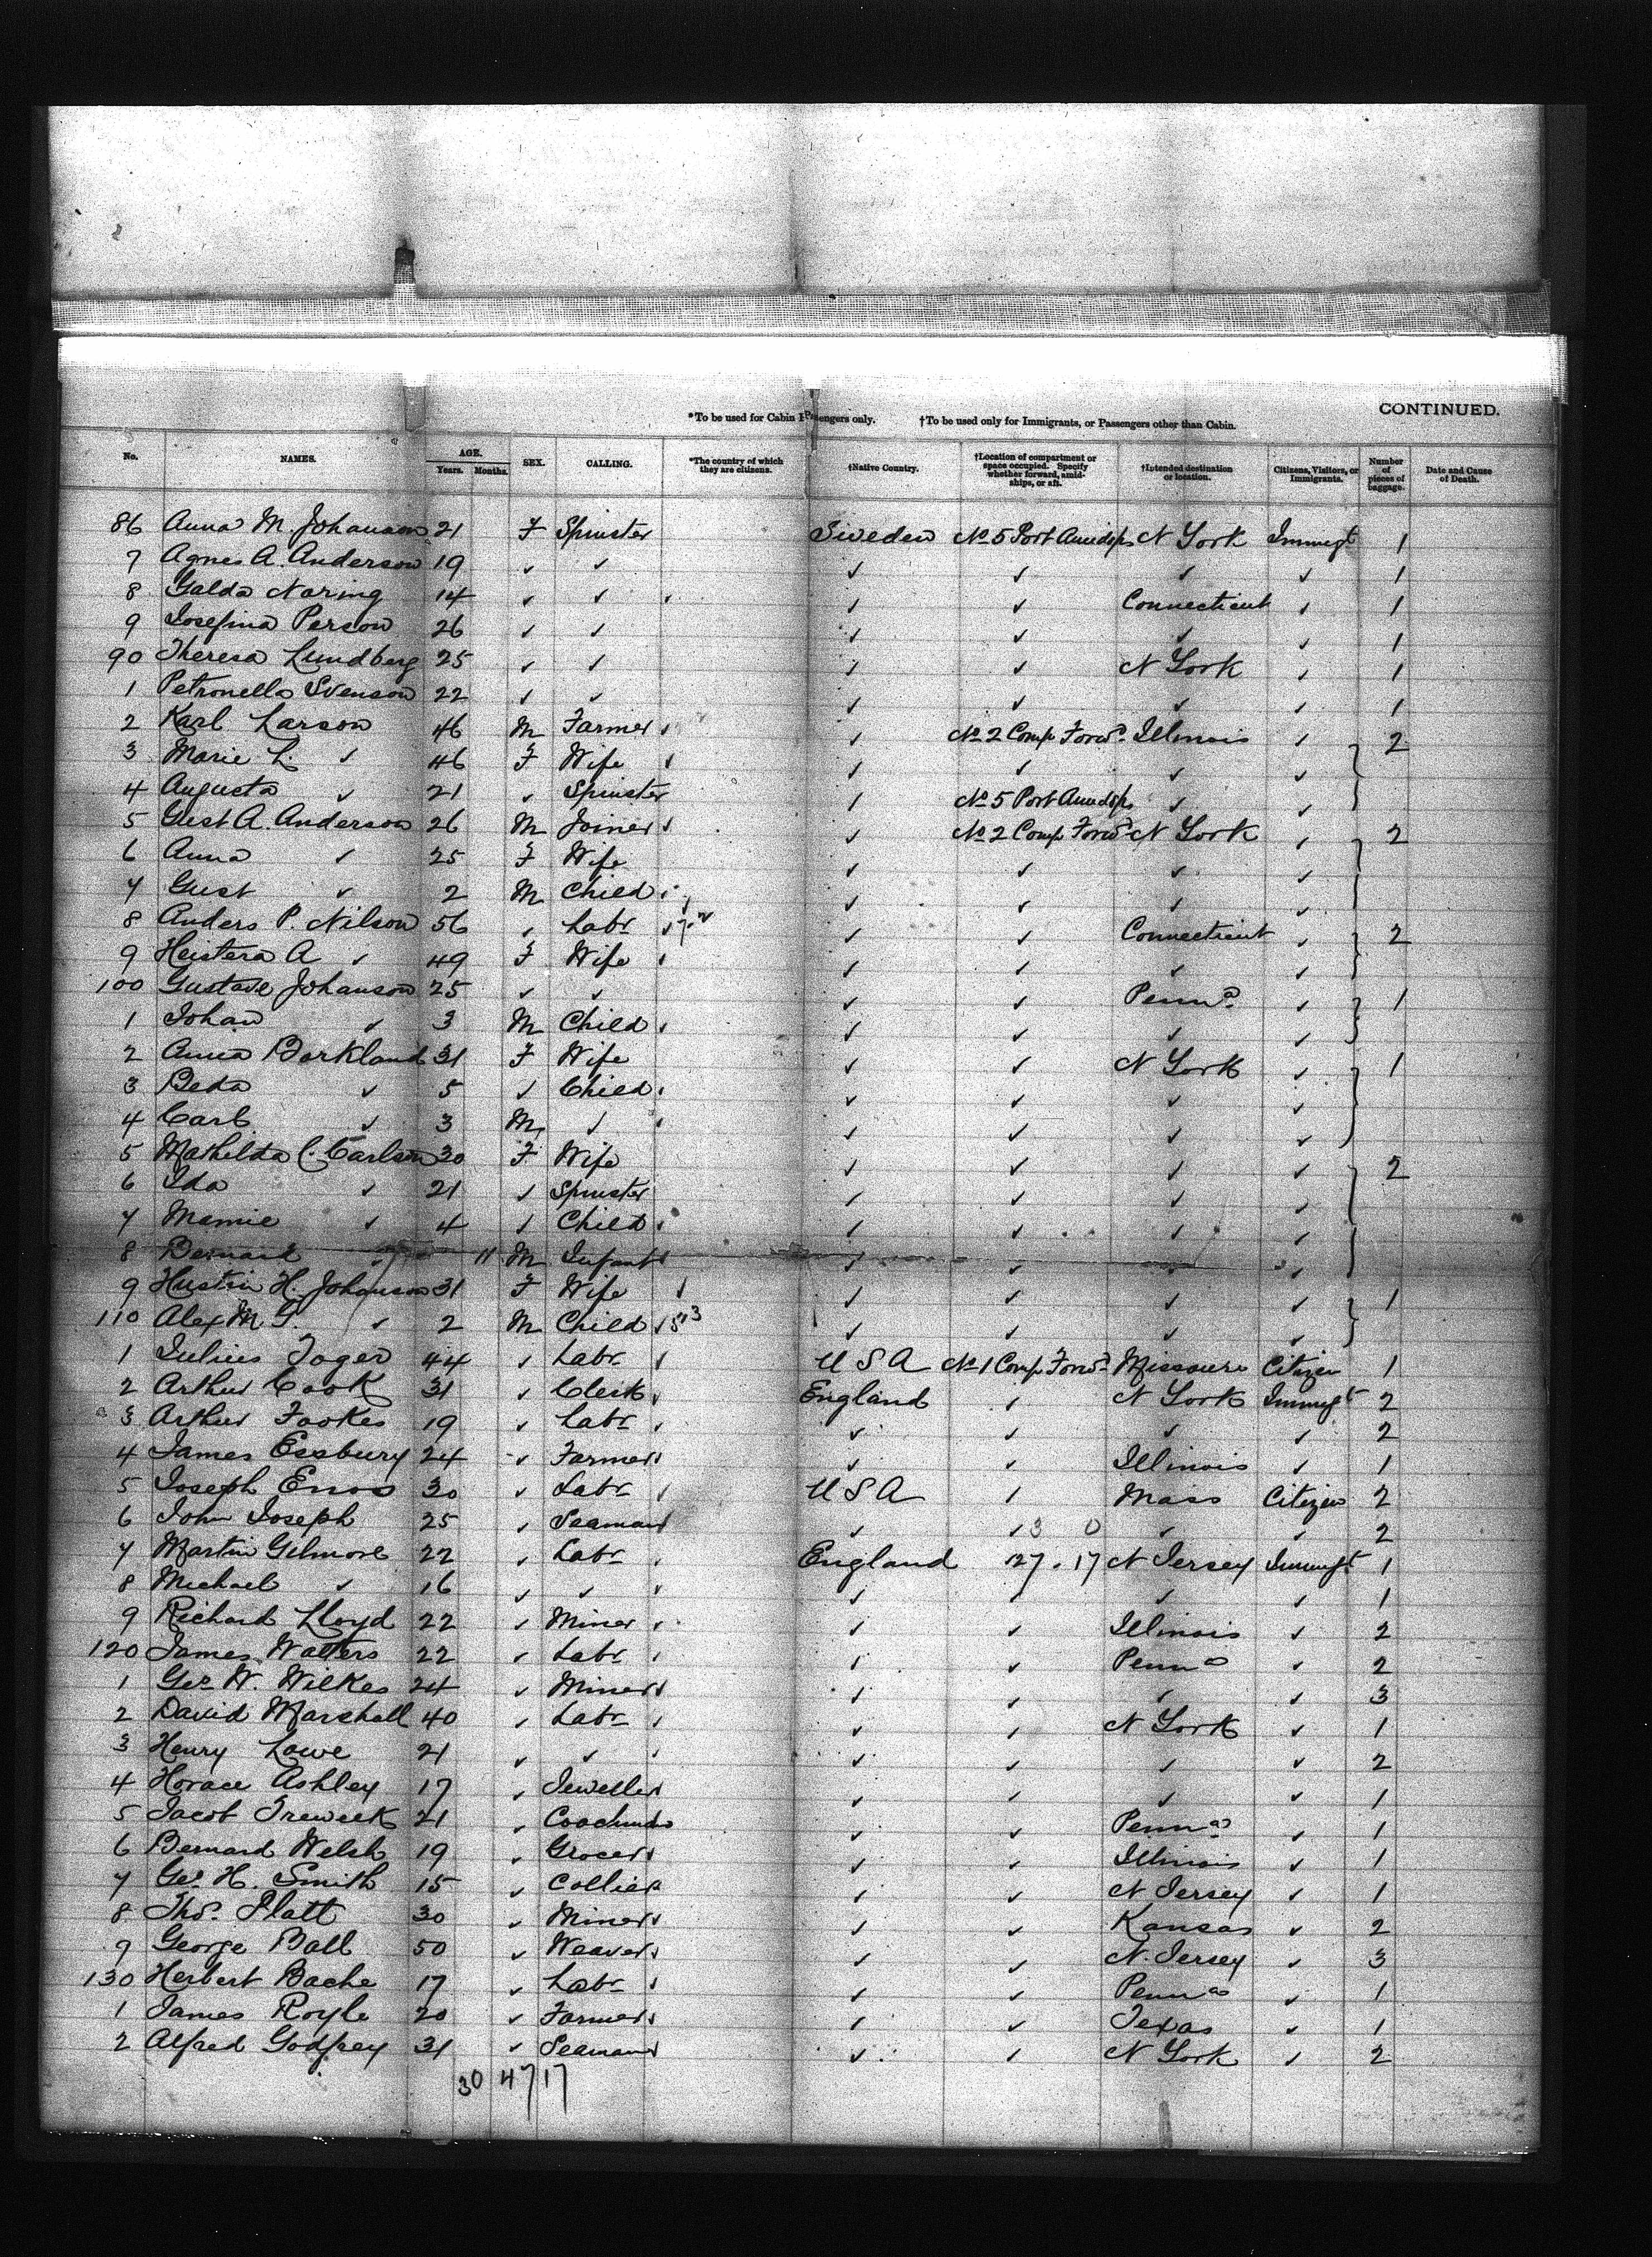 CONTINUED.
*To be used for Cabin Passengers only. †To be used only for Immigrants, or Passengers other than Cabin.
No. NAMES. AGE. Years. Months. SEX. CALLING. *The country of which they are citizens. †Native Country. †Location of compartment or space occupied. Specify whether forward, amidships, or aft. †Intended destination or location. Citizens, Visitors, or Immigrants. Number of pieces of baggage. Date and Cause of Death.
86 Anna M. Johanson 21 F Spinster Sweden No 5 Port Amidsps N York Immigt 1
7 Agnes A. Anderson 19 ✓ ✓ ✓ ✓ ✓ ✓ 1
8 Galda Noring 14 ✓ ✓ ✓ ✓ Connecticut ✓ 1
9 Josefina Person 26 ✓ ✓ ✓ ✓ ✓ ✓ 1
90 Theresa Lundberg 25 ✓ ✓ ✓ ✓ N York ✓ 1
1 Petronella Svenson 22 ✓ ✓ ✓ ✓ ✓ ✓ 1
2 Karl Larson 46 M Farmer ✓ No 2 Comp Forwd Illinois ✓ 2
3 Marie L. ✓ 46 F Wife ✓ ✓ ✓ ✓
4 Augusta ✓ 21 ✓ Spinster ✓ No 5 Port Amidsps ✓ ✓
5 Gust A. Anderson 26 M Joiner ✓ No 2 Comp Forwd N York ✓ 2
6 Anna ✓ 25 F Wife ✓ ✓ ✓ ✓
7 Gust ✓ 2 M Child ✓ ✓ ✓ ✓
8 Anders P. Nilson 56 ✓ Labr ✓ ✓ Connecticut ✓ 2
9 Heistera A ✓ 49 F Wife ✓ ✓ ✓ ✓
100 Gustave Johanson 25 ✓ ✓ ✓ ✓ Penna ✓ 1
1 Johan ✓ 3 M Child ✓ ✓ ✓ ✓
2 Anna Borkland 31 F Wife ✓ ✓ N York ✓ 1
3 Beda ✓ 5 ✓ Child ✓ ✓ ✓ ✓
4 Carl ✓ 3 M ✓ ✓ ✓ ✓ ✓
5 Mathelda C. Carlson 30 F Wife ✓ ✓ ✓ ✓ 2
6 Ida ✓ 21 ✓ Spinster ✓ ✓ ✓ ✓
7 Mamie ✓ 4 ✓ Child ✓ ✓ ✓ ✓
8 Bernard ✓ 11 M Infant ✓ ✓ ✓ ✓
9 Hustin H. Johanson 31 F Wife ✓ ✓ ✓ ✓ 1
110 Alex M. ✓ 2 M Child ✓ ✓ ✓ ✓
1 Julius Joger 44 ✓ Labr U S A No 1 Comp Forwd Missouri Citizen 1
2 Arthur Cook 31 ✓ Clerk England ✓ N York Immigt 2
3 Arthur Fookes 19 ✓ Labr ✓ ✓ ✓ ✓ 2
4 James Essbury 24 ✓ Farmer ✓ ✓ Illinois ✓ 1
5 Joseph Enos 30 ✓ Labr U S A ✓ Mass Citizen 2
6 John Joseph 25 ✓ Seaman ✓ ✓ 3 0 ✓ ✓ 2
7 Martin Gilmore 22 ✓ Labr England 27. 17 N Jersey Immigt 1
8 Michael ✓ 16 ✓ ✓ ✓ ✓ ✓ ✓ 1
9 Richard Lloyd 22 ✓ Miner ✓ ✓ Illinois ✓ 2
120 James Walters 22 ✓ Labr ✓ ✓ Penna ✓ 2
1 Geo W. Wilkes 24 ✓ Miner ✓ ✓ ✓ ✓ 3
2 David Marshall 40 ✓ Labr ✓ ✓ N York ✓ 1
3 Henry Lowe 21 ✓ ✓ ✓ ✓ ✓ ✓ 2
4 Horace Ashley 17 ✓ Jeweller ✓ ✓ ✓ ✓ 1
5 Jacob Treweek 21 ✓ Coachman ✓ ✓ Penna ✓ 1
6 Bernard Welsh 19 ✓ Grocer ✓ ✓ Illinois ✓ 1
7 Geo H. Smith 15 ✓ Collier ✓ ✓ N Jersey ✓ 1
8 Thos. Platt 30 ✓ Miner ✓ ✓ Kansas ✓ 2
9 George Ball 50 ✓ Weaver ✓ ✓ N. Jersey ✓ 3
130 Herbert Bache 17 ✓ Labr ✓ ✓ Penna ✓ 1
1 James Royle 20 ✓ Farmer ✓ ✓ Texas ✓ 1
2 Alfred Godfrey 31 ✓ Seaman ✓ ✓ N York ✓ 2
30 47 17